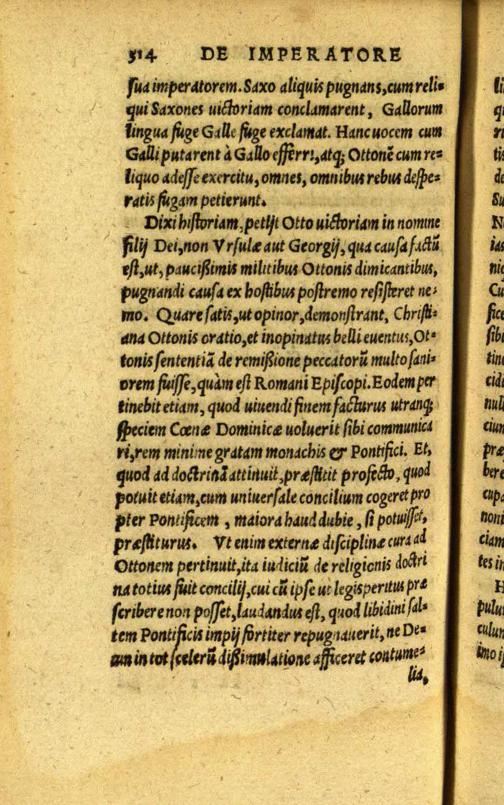 314 DE IMPERATORE
sua imperatorem. Saxo aliquis pugnans, cum reli=
qui Saxones uictoriam conclamarent, Gallorum
lingua fuge Galle fuge exclamat. Hanc uocem cum
Galli putarent à Gallo efferri, atq; Ottonē cum re=
liquo adesse exercitu, omnes, omnibus rebus despe=
ratis fugam petierunt.
Dixi historiam, petijt Otto uictoriam in nomine
filij Dei, non Vrsulæ aut Georgij, qua causa factū
est, ut, paucißimis militibus Ottonis dimicantibus,
pugnandi causa ex hostibus postremo resisteret ne=
mo. Quare satis, ut opinor, demonstrant, Christi=
ana Ottonis oratio, et inopinatus belli euentus, Ot=
tonis sententiā de remißione peccatorū multo sani=
orem fuisse, quàm est Romani Episcopi. Eodem per
tinebit etiam, quod uiuendi finem facturus utranq;
speciem Cœnæ Dominicæ uoluerit sibi communica
ri, rem minime gratam monachis & Pontifici. Et,
quod ad doctrinā attinuit, præstitit profecto, quod
potuit etiam, cum uniuersale concilium cogeret pro
pter Pontificem, maiora haud dubie, si potuisset,
præstiturus. Vt enim externæ disciplinæ cura ad
Ottonem pertinuit, ita iudiciū de religionis doctri
na totius fuit concilij, cui cū ipse ut legisperitus præ
scribere non posset, laudandus est, quod libidini sal=
tem Pontificis impij fortiter repugnauerit, ne De=
um in tot scelerū dißimulatione afficeret contume=
lia,